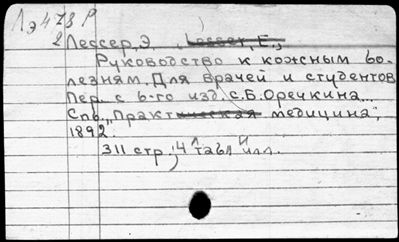 Лэ 478 Р
2 Лессер, Э. (Lesser, E.,)
Руководство к кожным бо-
лезням. Для врачей и студентов
Пер. с 6-го изд. С.Б. Оречкина...
Спб., "Практическая медицина",
1892.
311 стр., 4 л табл. илл.